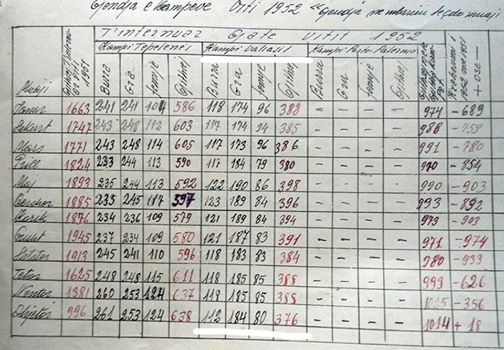 Gjendja e kampeve Viti 1952 "Gjendja ne mbarim te çdo muaji
T'internuar Gjate Vitit 1952
Kampi Tepelenes Kampi Valiasit Kampi Porto-Palermo
Muaji 1951 Burra Gra Femije Gjithsej Burra Gra Femije Gjithsej Burra Gra Femije Gjithsej
Janar 1663 241 241 104 586 118 174 96 388 - - - - 974 - 689
Shkurt 1747 243 248 112 603 117 174 94 385 - - - -
Mars 1771 243 248 114 605 117 173 96 386 - - - - 991 - 780
Prill 1824 233 244 113 590 117 184 79 380 - - - - 970 - 854
Maj 1893 235 244 113 592 122 190 86 398 - - - - 990 - 903
Qershor 1885 235 245 117 597 123 189 84 396 - - - - 993 - 892
Korrik 1876 234 236 109 579 121 189 84 394 - - - - 973 - 903
Gusht 1945 237 234 109 580 121 187 83 391 - - - - 971 - 974
Shtator 1913 245 241 110 596 118 183 83 384 - - - - 980 - 933
Tetor 1625 248 248 115 611 118 185 85 388 - - - - 999 - 626
Nentor 1381 260 253 124 637 118 185 85 388 - - - - 1025 - 356
Dhjetor 996 261 253 124 638 112 184 80 376 - - - - 1014 + 18